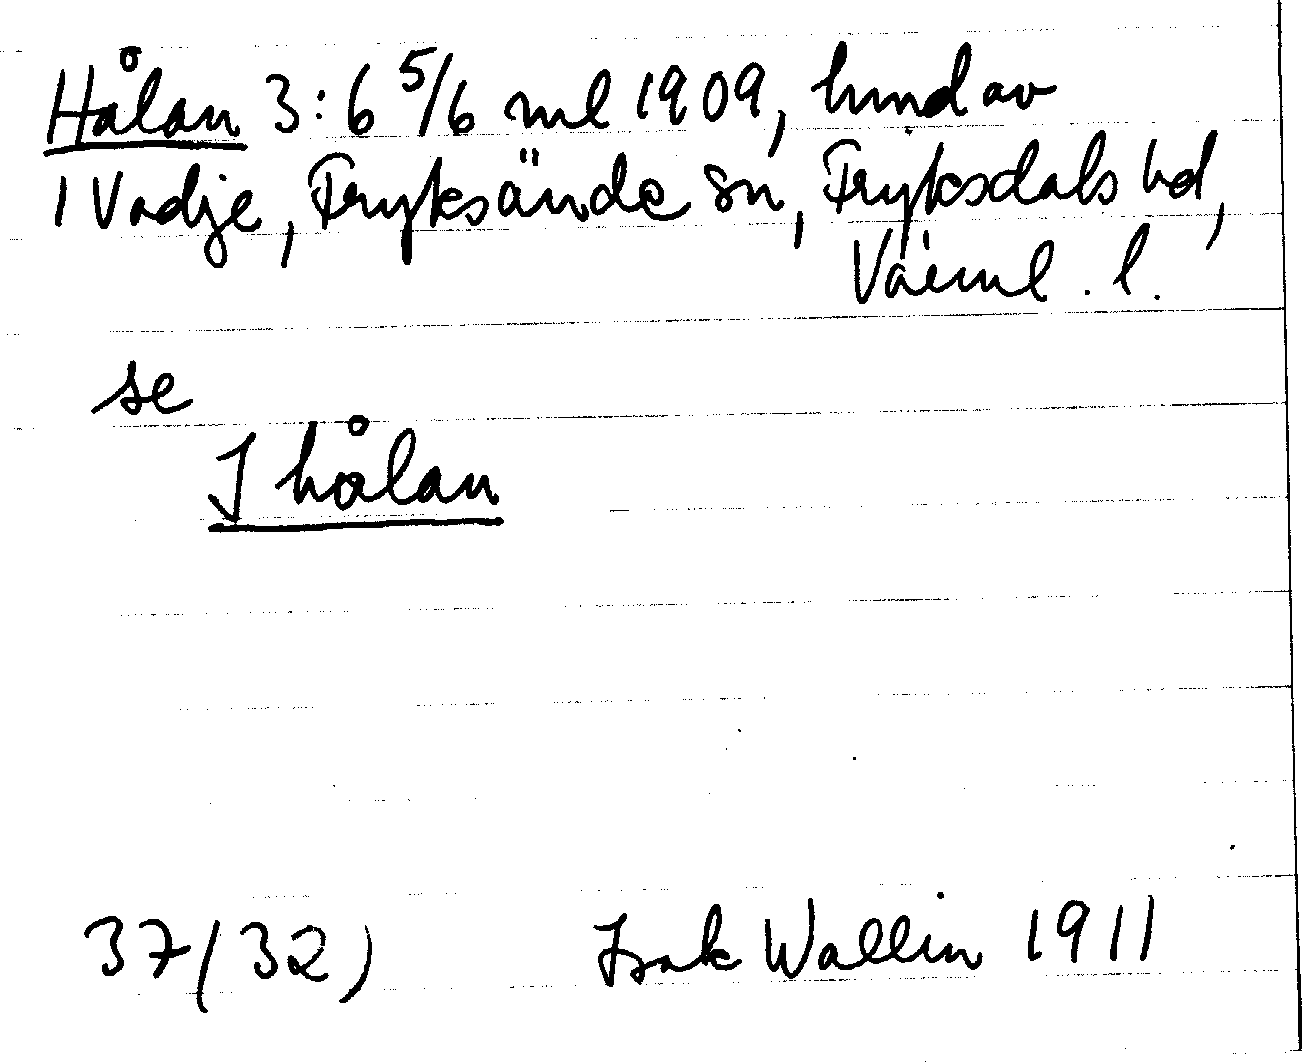 Hålan 3:6 5/6 ml 1909, hmd av
1 Vadje, Fryksände sn, Fryksdals hd,
Värml. l.
se
I hålan
37(32) Isak Wallin 1911